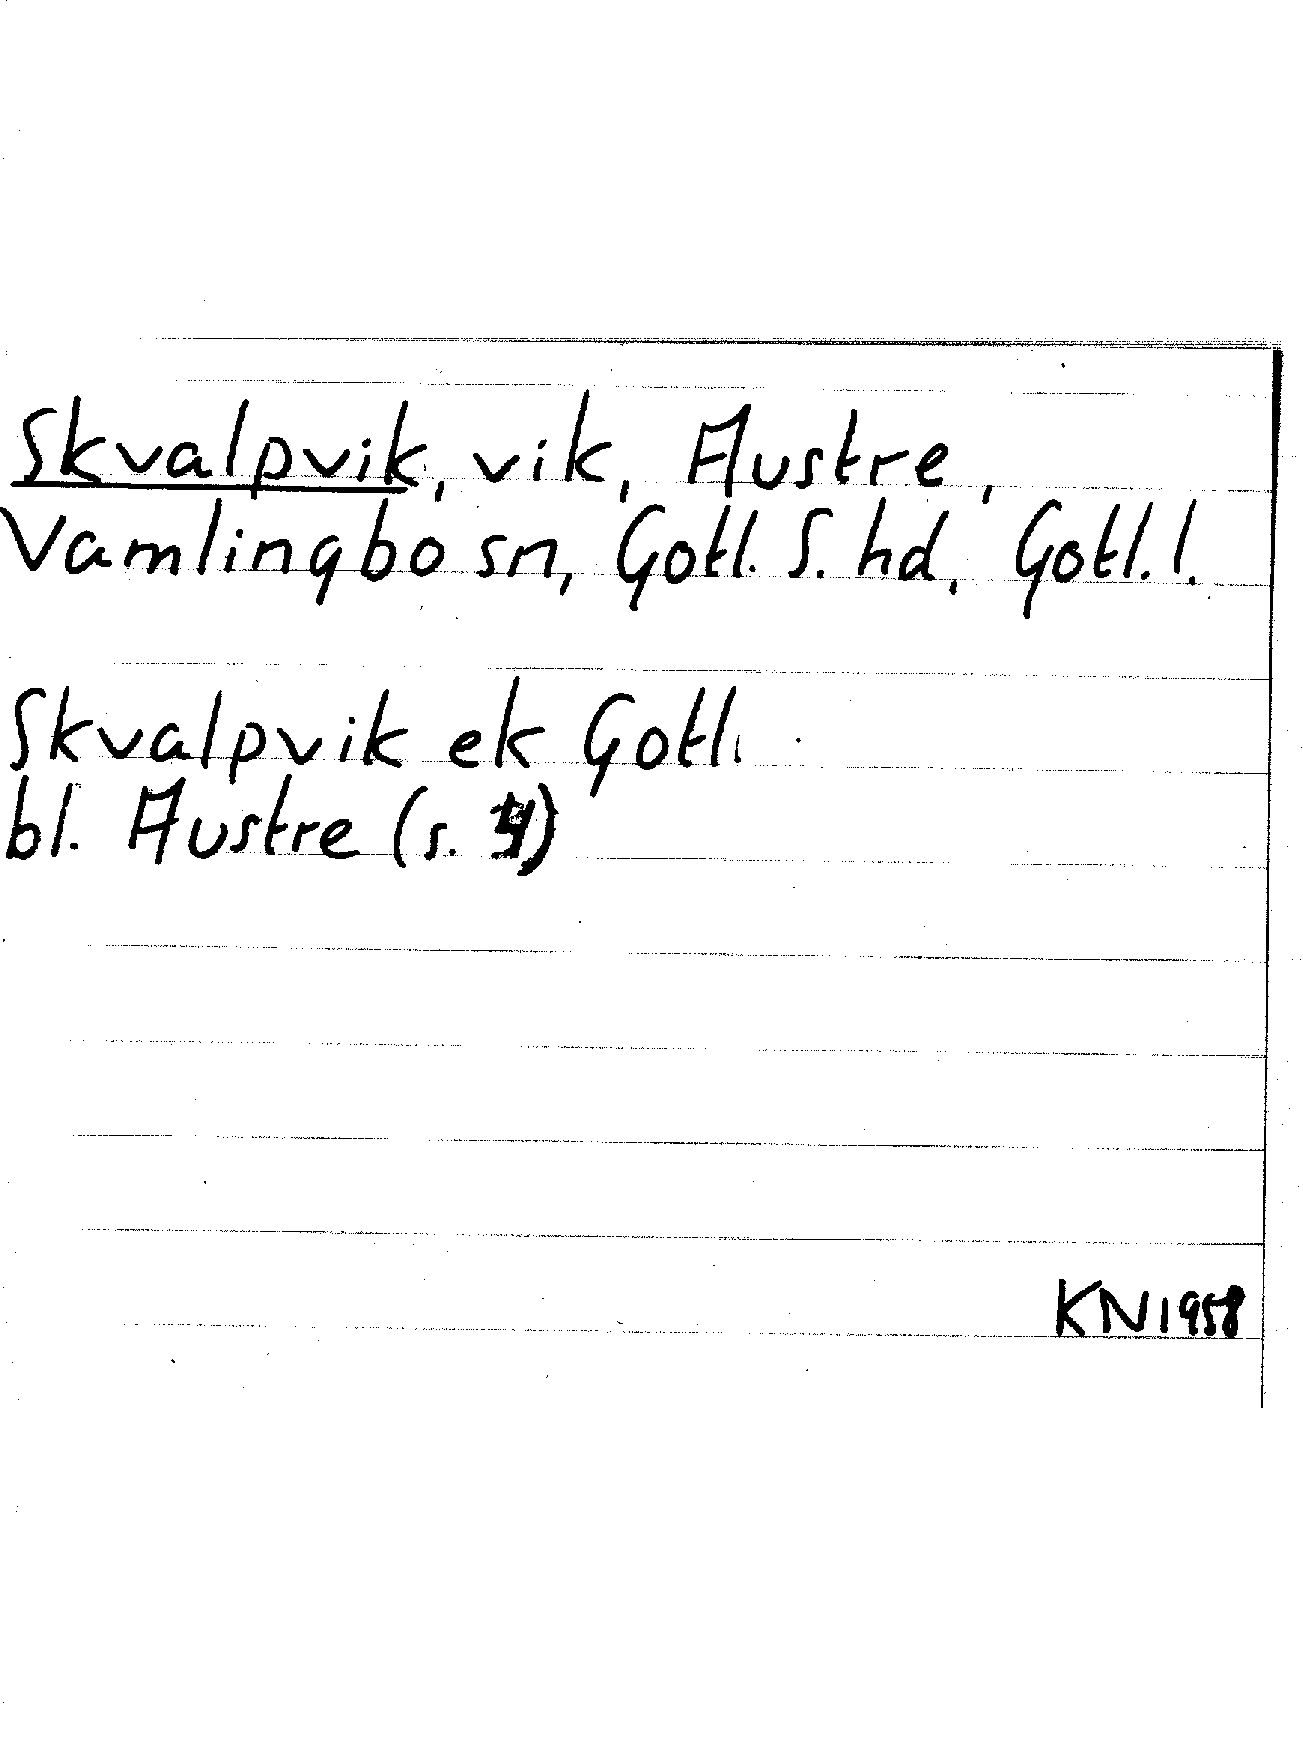 Skvalpvik, vik, Austre,
Vamlingbo sn, Gotl. S. hd, Gotl. l.
Skvalpvik ek Gotl.
bl. Austre (s. 4)
KN 1958